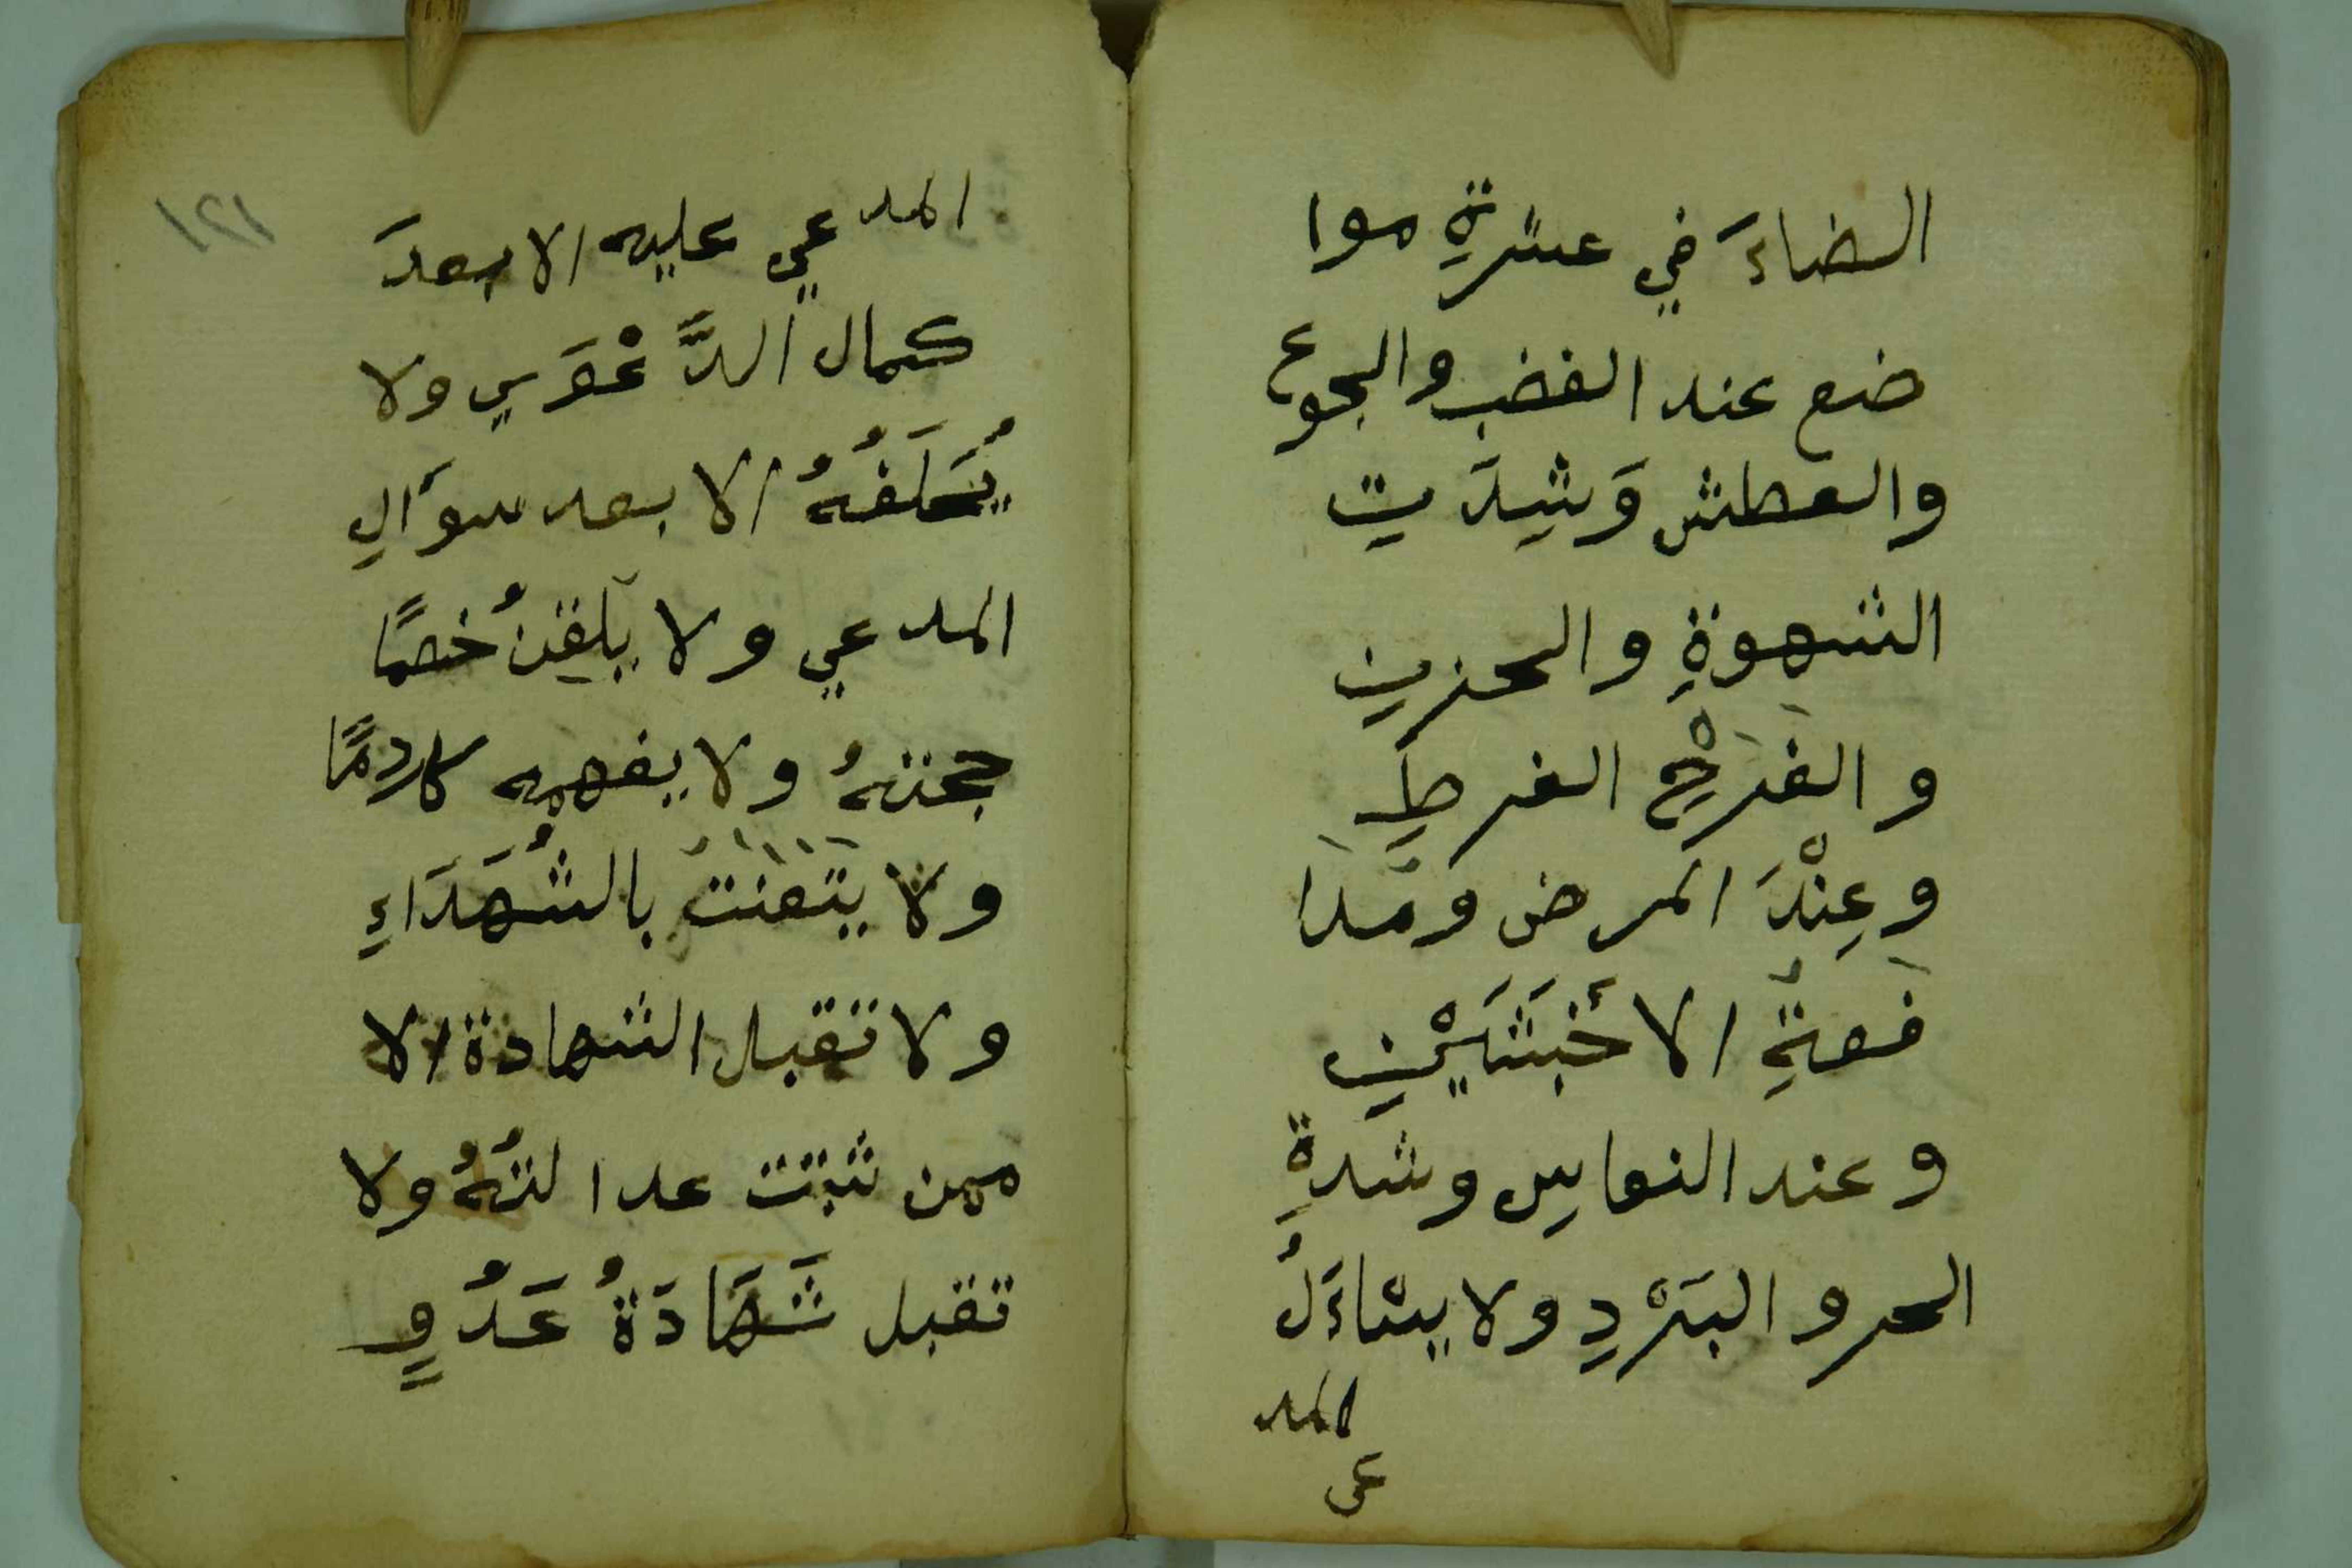 القضاءَ في عشرةِ موا
ضع عند الغضب والجوع
والعطش وَشِدَتِ
الشهوةِ والحزنِ
والفرَحْ الفرطِ
وعِنْدَ المرض ومَدا
فعةِ الاخبَثَيْنِ
وعند النعاسِ وشدةِ
الحر والبَرْدِ ولا يساءَلُ
المد
عى
١٢١
المدعي عليه الا بعدَ
كمال الدَّعْوَي ولا
يُحَلفُهُ الا بعد سوَالِ
المدعي ولا يلقنُ خصمًا
حجتهُ ولا يفهمه كلامًا
ولا يتعنتُ بالشُهَدَاءِ
ولا تقبل الشهادة الا
ممن ثبتت عدالتُهُ ولا
تقبل شَهَادَةُ عَدُوٍ